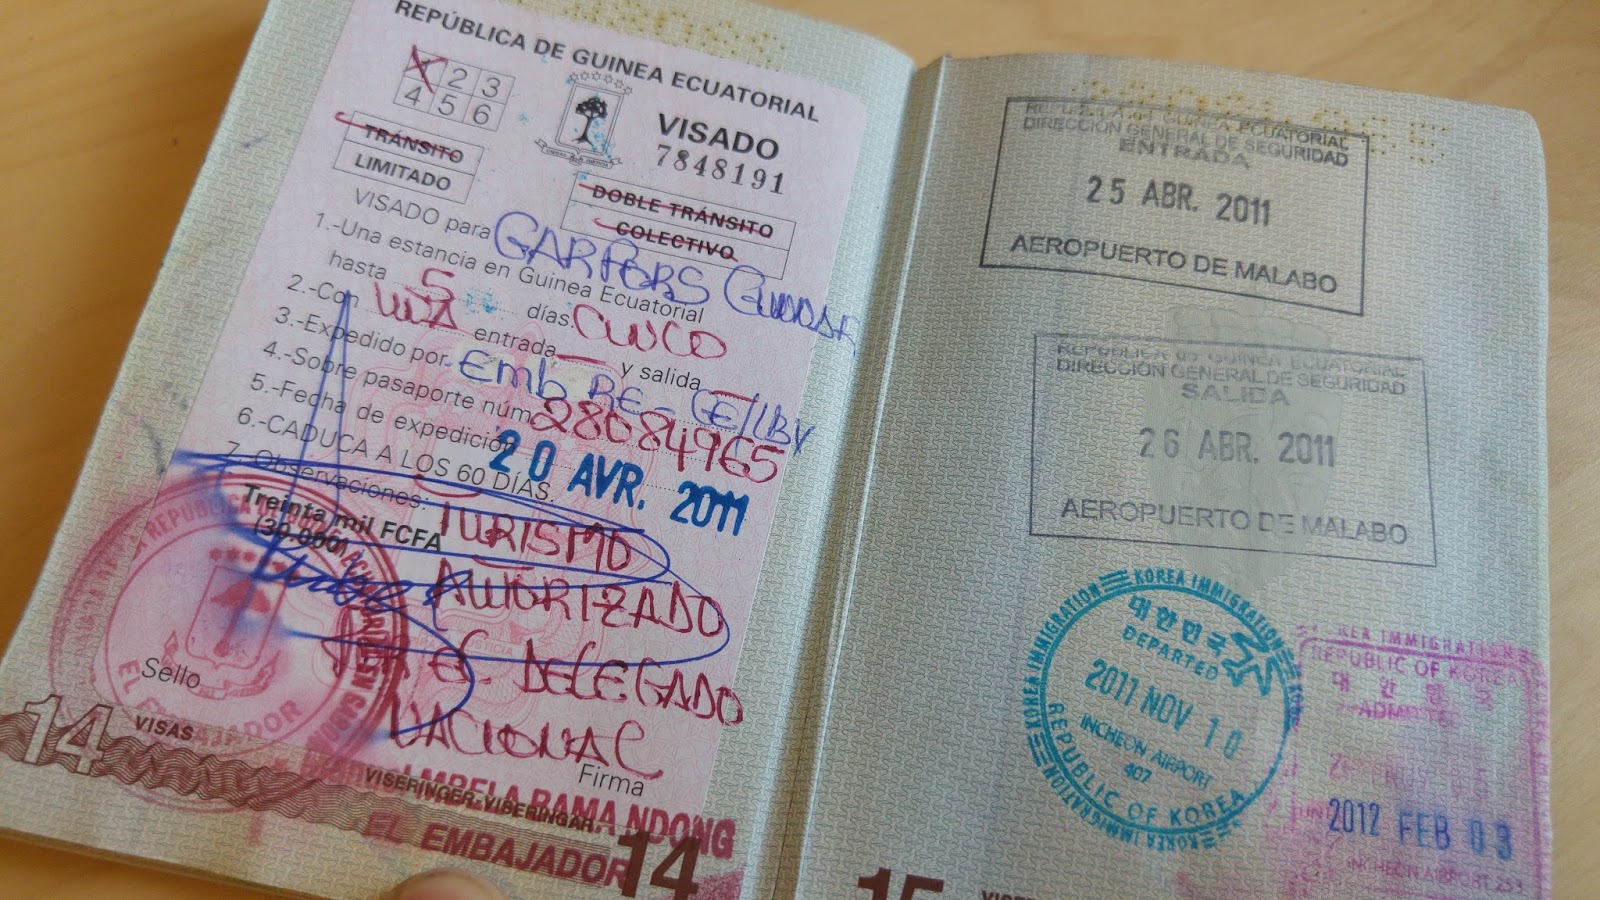 REPÚBLICA DE GUINEA ECUATORIAL
1 2 3
4 5 6
VISADO
7848191
TRÁNSITO
LIMITADO
DOBLE TRÁNSITO
COLECTIVO
VISADO para GARFORS
1.-Una estancia en Guinea Ecuatorial
hasta 5 días. CINCO
2.-Con UNA entrada y salida
3.-Expedido por Emb RE - GE/LBV
4.-Sobre pasaporte núm 28684965
5.-Fecha de expedición 20 AVR. 2011
6.-CADUCA A LOS 60 DÍAS.
7.-Observaciones: TURISMO
Treinta mil FCFA
(30.000)
AUTORIZADO
EL DELEGADO
NACIONAL
Sello
Firma
EL EMBAJADOR
14
VISAS
VISERINGER-VIBERINGAR
RAMA NDONG
EL EMBAJADOR
14
REPUBLICA DE GUINEA ECUATORIAL
DIRECCIÓN GENERAL DE SEGURIDAD
ENTRADA
25 ABR. 2011
AEROPUERTO DE MALABO
REPUBLICA DE GUINEA ECUATORIAL
DIRECCIÓN GENERAL DE SEGURIDAD
SALIDA
26 ABR. 2011
AEROPUERTO DE MALABO
KOREA IMMIGRATION
KOREA IMMIGRATION
대한민국
DEPARTED
2011 NOV 10
INCHEON AIRPORT
407
REPUBLIC OF KOREA
KOREA IMMIGRATION
KOREA IMMIGRATION
REPUBLIC OF KOREA
대한민국
ADMITTED
2012 FEB 03
INCHEON AIRPORT 253
15